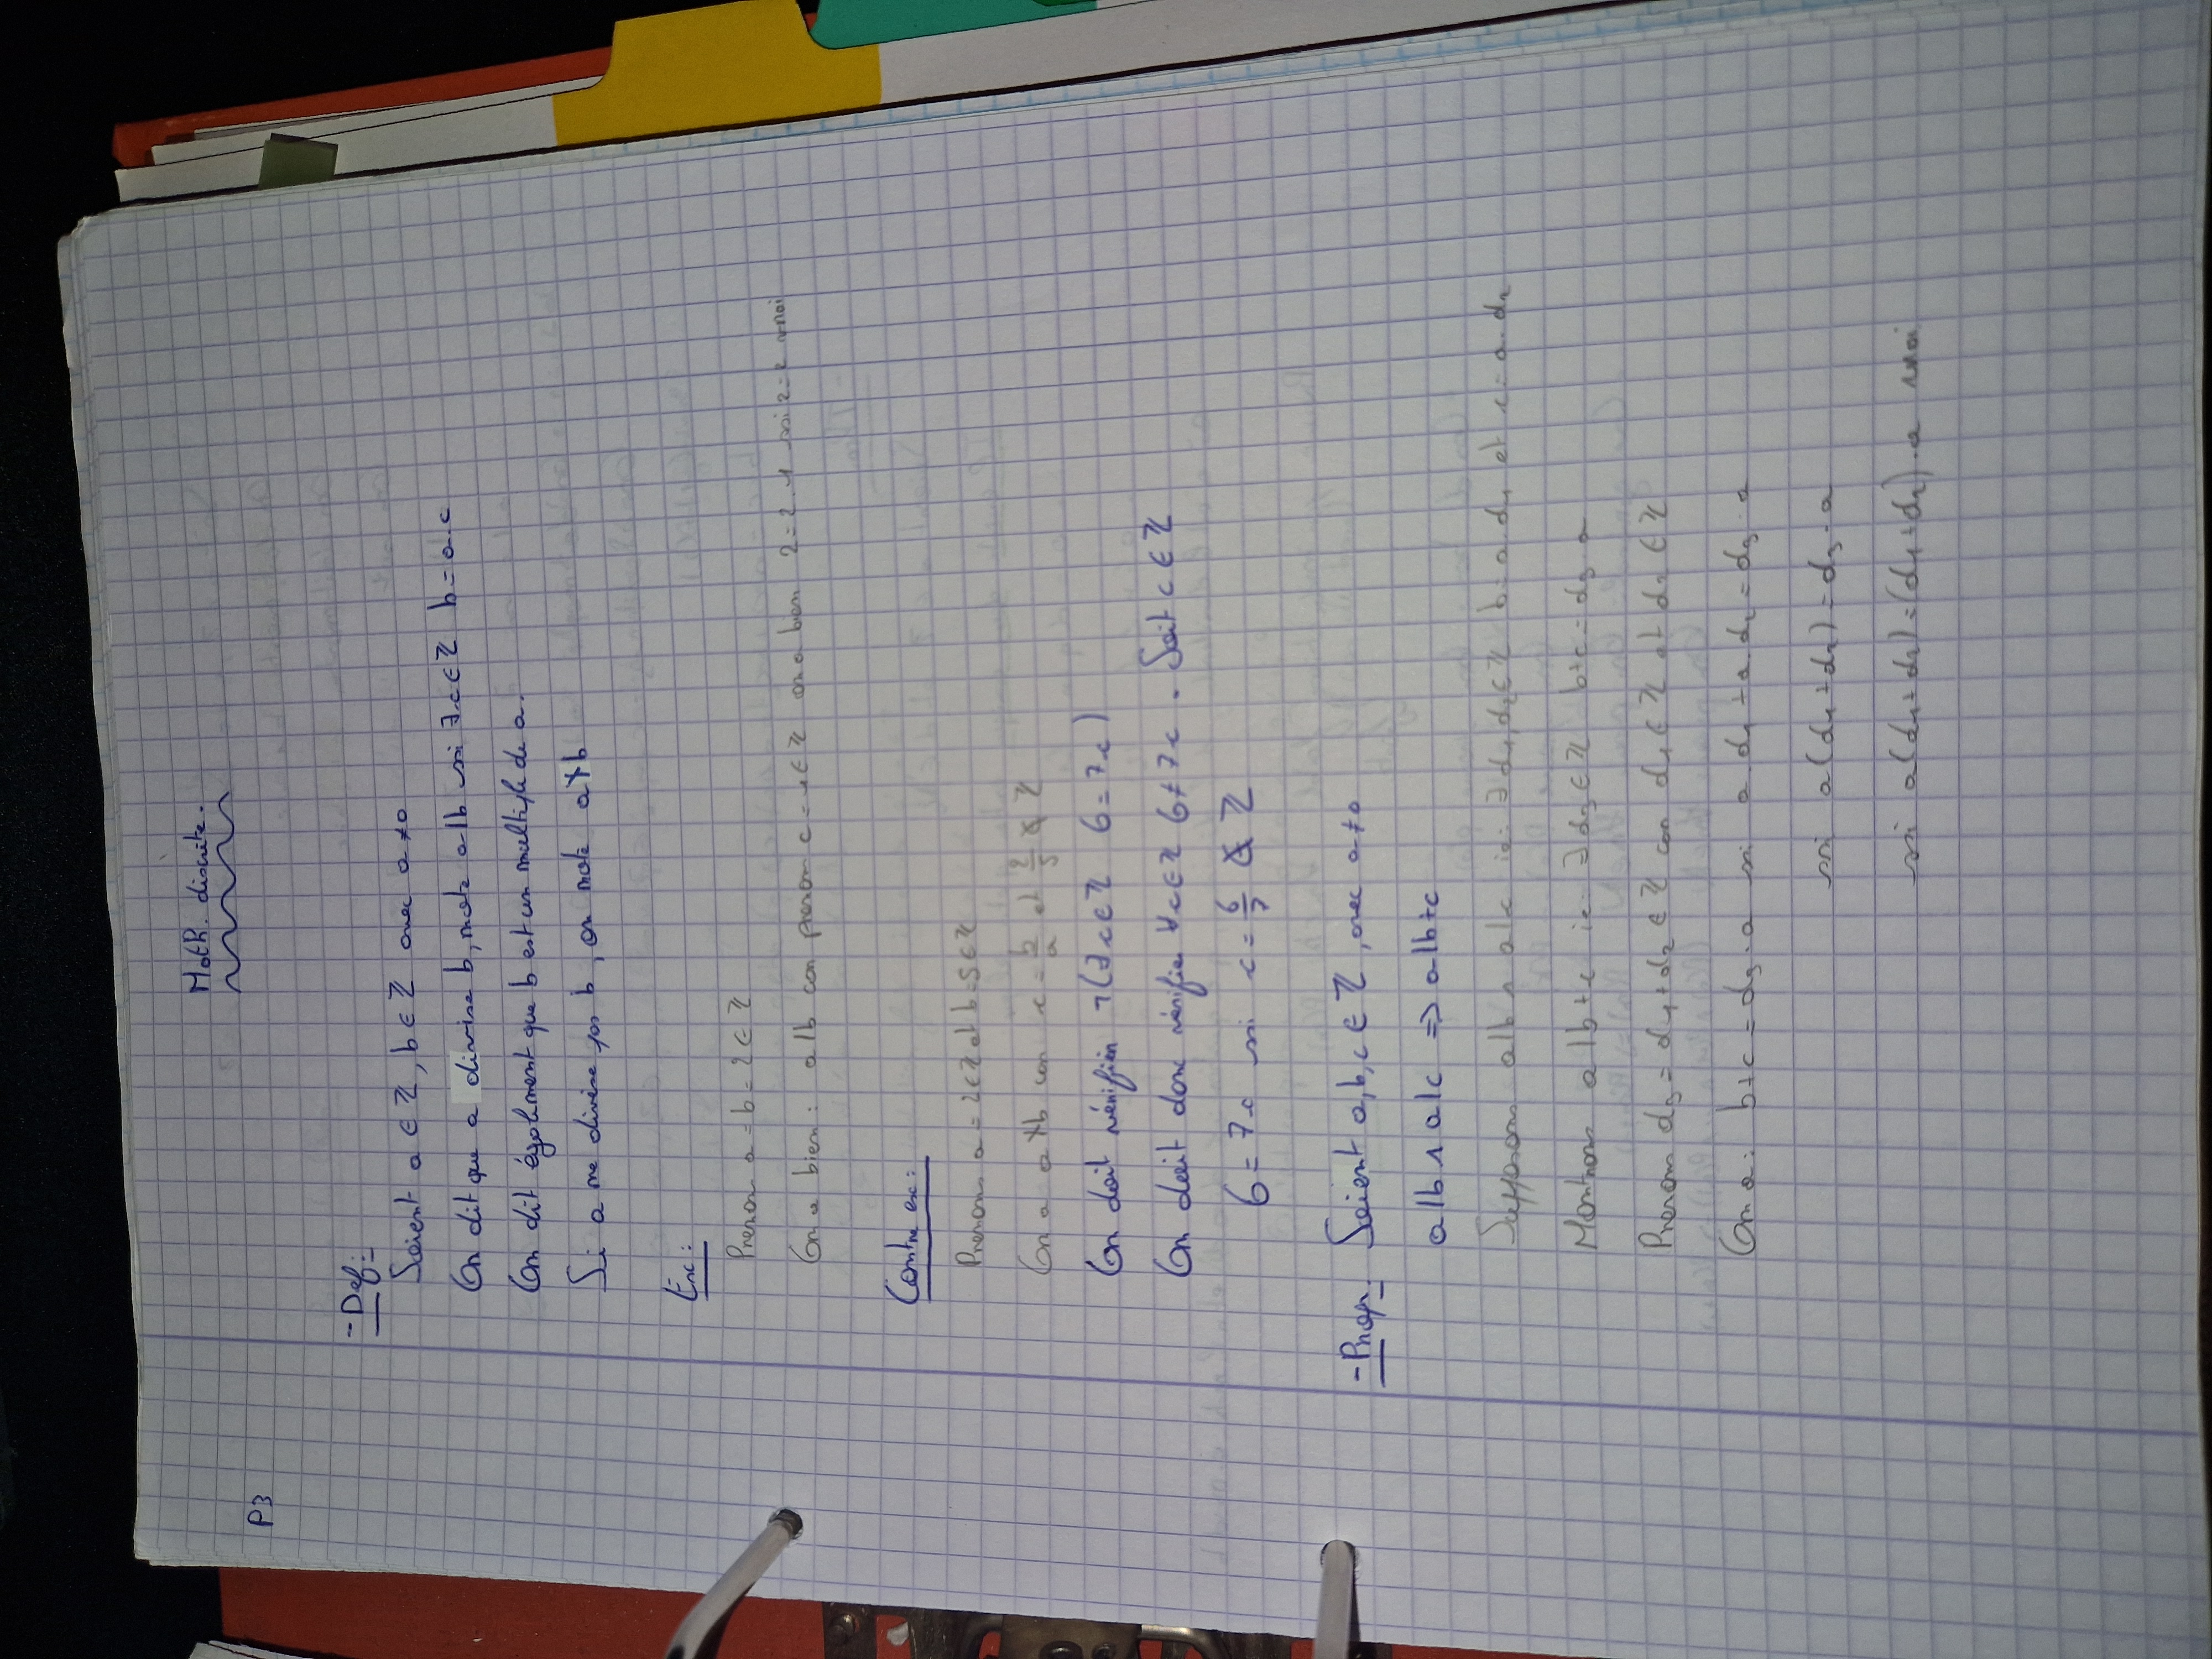 Math. discrète.
P3
- Def:
Soient a ∈ ℤ, b ∈ ℤ avec a ≠ 0
On dit que a divise b, note a|b ssi ∃c ∈ ℤ b = a.c
On dit également que b est un multiple de a.
Si a ne divise pas b, on note a∤b
Ex:
Prenons a = b = 2 ∈ ℤ
On a bien : a|b car prenons c = 1 ∈ ℤ on a bien 2 = 2.1 ssi 2 = 2 vrai
Contre ex:
Prenons a = 2 ∈ ℤ et b = 5 ∈ ℤ
On a a∤b car c = b/a et 2/5 ∉ ℤ
On doit vérifier ¬(∃c ∈ ℤ 6 = 7c)
On doit donc vérifier ∀c ∈ ℤ 6 ≠ 7c. Soit c ∈ ℤ
6 = 7c ssi c = 6/7 ∉ ℤ
- Prop. Soient a, b, c ∈ ℤ, avec a ≠ 0
a|b ∧ a|c => a|b+c
Supposons a|b ∧ a|c ie: ∃ d₁, d₂ ∈ ℤ b = a.d₁ et c = a.d₂
Montrons a|b+c ie: ∃ d₃ ∈ ℤ b+c = d₃.a
Prenons d₃ = d₁+d₂ ∈ ℤ car d₁ ∈ ℤ et d₂ ∈ ℤ
On a : b+c = d₃.a ssi a.d₁ + a.d₂ = d₃.a
ssi a(d₁+d₂) = d₃.a
ssi a(d₁+d₂) = (d₁+d₂).a vrai